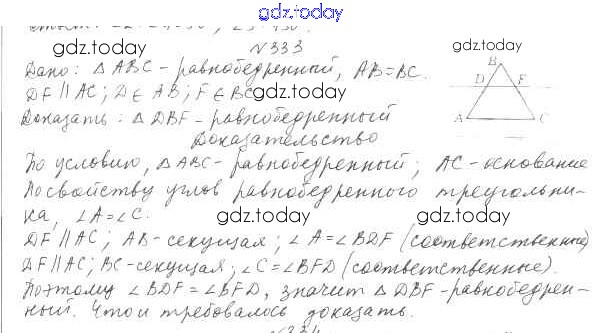 gdz.today
N333
gdz.today
gdz.today
Дано: △ABC - равнобедренный, AB=BC.
DF || AC; D∈AB; F∈BC
gdz.today
Доказать: △DBF - равнобедренный
B
D F
A C
Доказательство
По условию, △ABC - равнобедренный; AC - основание
По свойству углов равнобедренного треугольни-
ка, ∠A=∠C.
gdz.today
gdz.today
DF || AC; AB - секущая; ∠A=∠BDF (соответственные)
DF || AC; BC - секущая; ∠C=∠BFD (соответственные).
gdz.today
Поэтому ∠BDF=∠BFD, значит △DBF - равнобедрен-
ный. Что и требовалось доказать.
gdz.today
gdz.today
N334